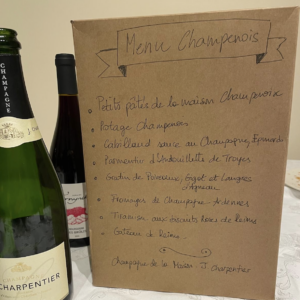 Menu Champenois
Petits pâtés de la maison Champenoise
Potage Champenois
Cabillaud sauce au Champagne,
Parmentier d'Andouillette de Troyes
Gigot et
d'Agneau
Fromages de Champagne - Ardennes
aux biscuits roses de Reims
Gâteau de Reims
Champagne de la Maison J. Charpentier
CHAMPAGNE
CHARPENTIER